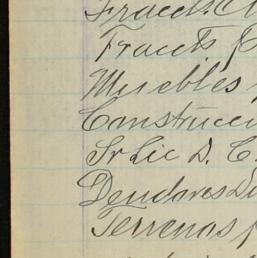 Fracts.
Fracts
Muebles
Construcci
Sr Lic D. C.
Deudores Di
Terrenos